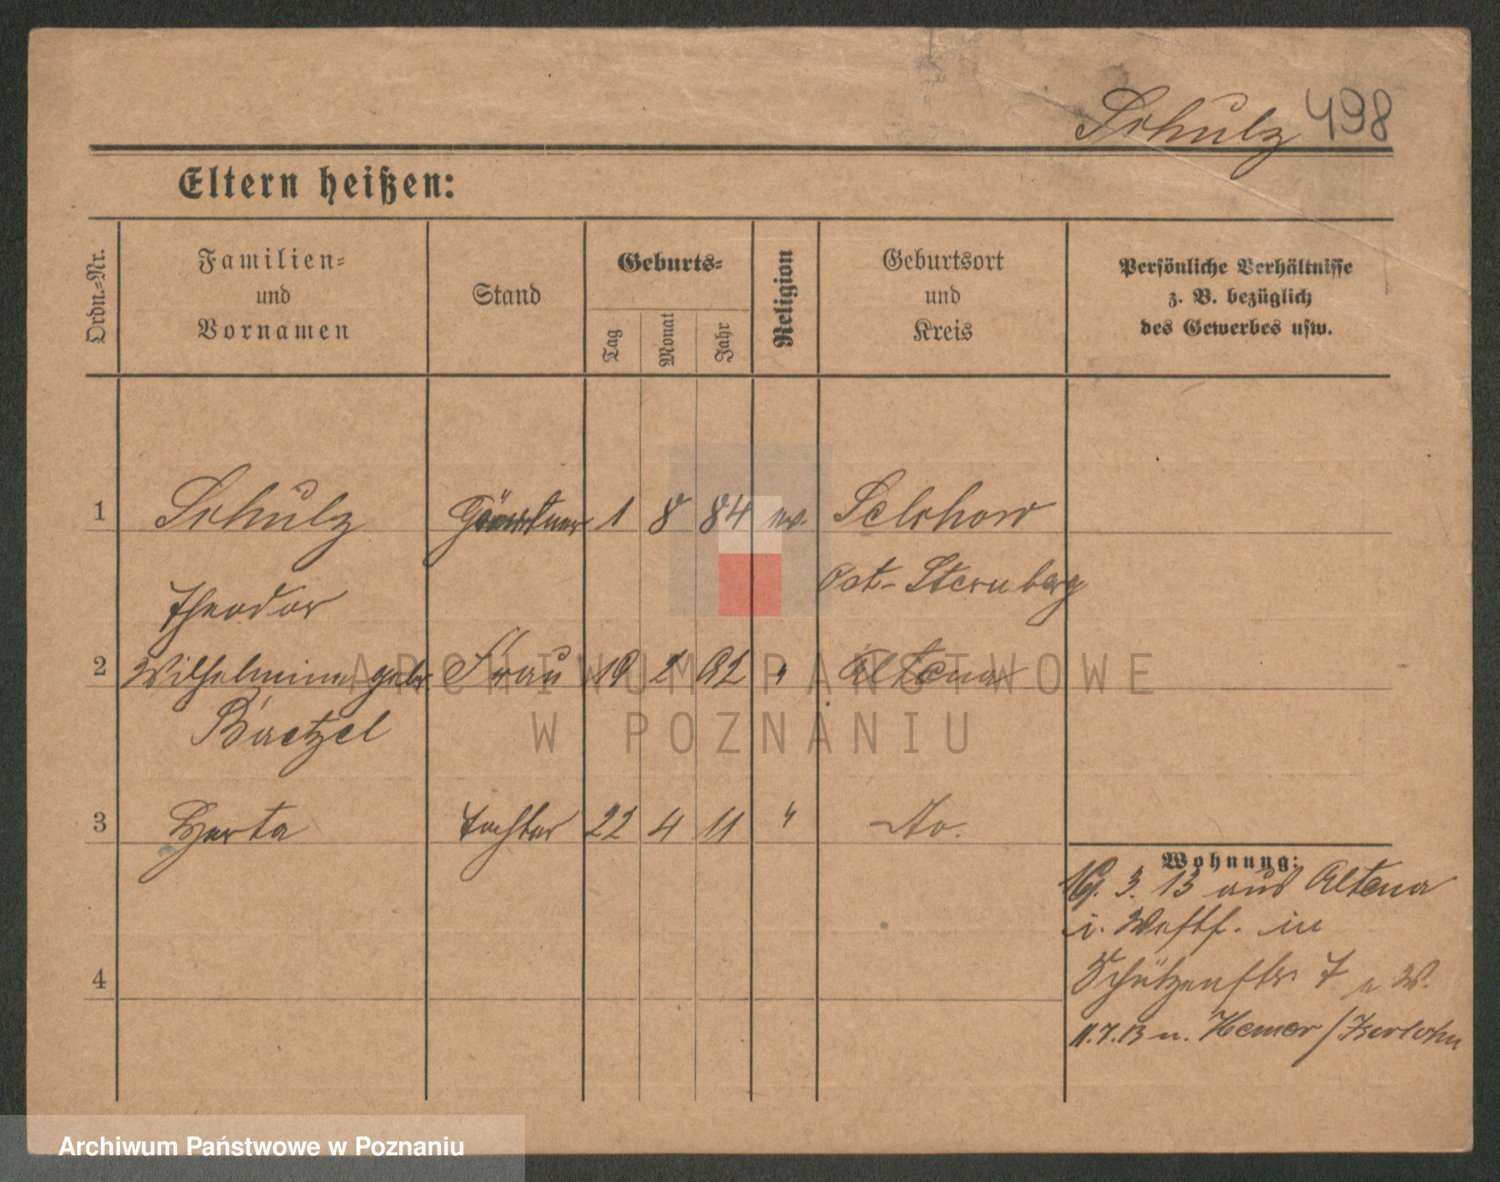 Schulz 498
Eltern heißen:
Ordn.-Nr.
Familien-
und
Vornamen
Stand
Geburts-
Tag
Monat
Jahr
Religion
Geburtsort
und
Kreis
Persönliche Verhältnisse
z. B. bezüglich
des Gewerbes usw.
1 Schulz Gärtner 1 8 84 ev. Selchow
Theodor Ost-Sternberg
2 Wilhelmine geb. Frau 19 2 92 " Altena
Baetzel
3 Herta Tochter 22 4 11 " do.
Wohnung:
19. 3. 13 aus Altena
i. Westf. in
Schützenstr. 7 W.
4
11.7.13 n. Hemer/Iserlohn
ARCHIWUM PAŃSTWOWE
W POZNANIU
Archiwum Państwowe w Poznaniu